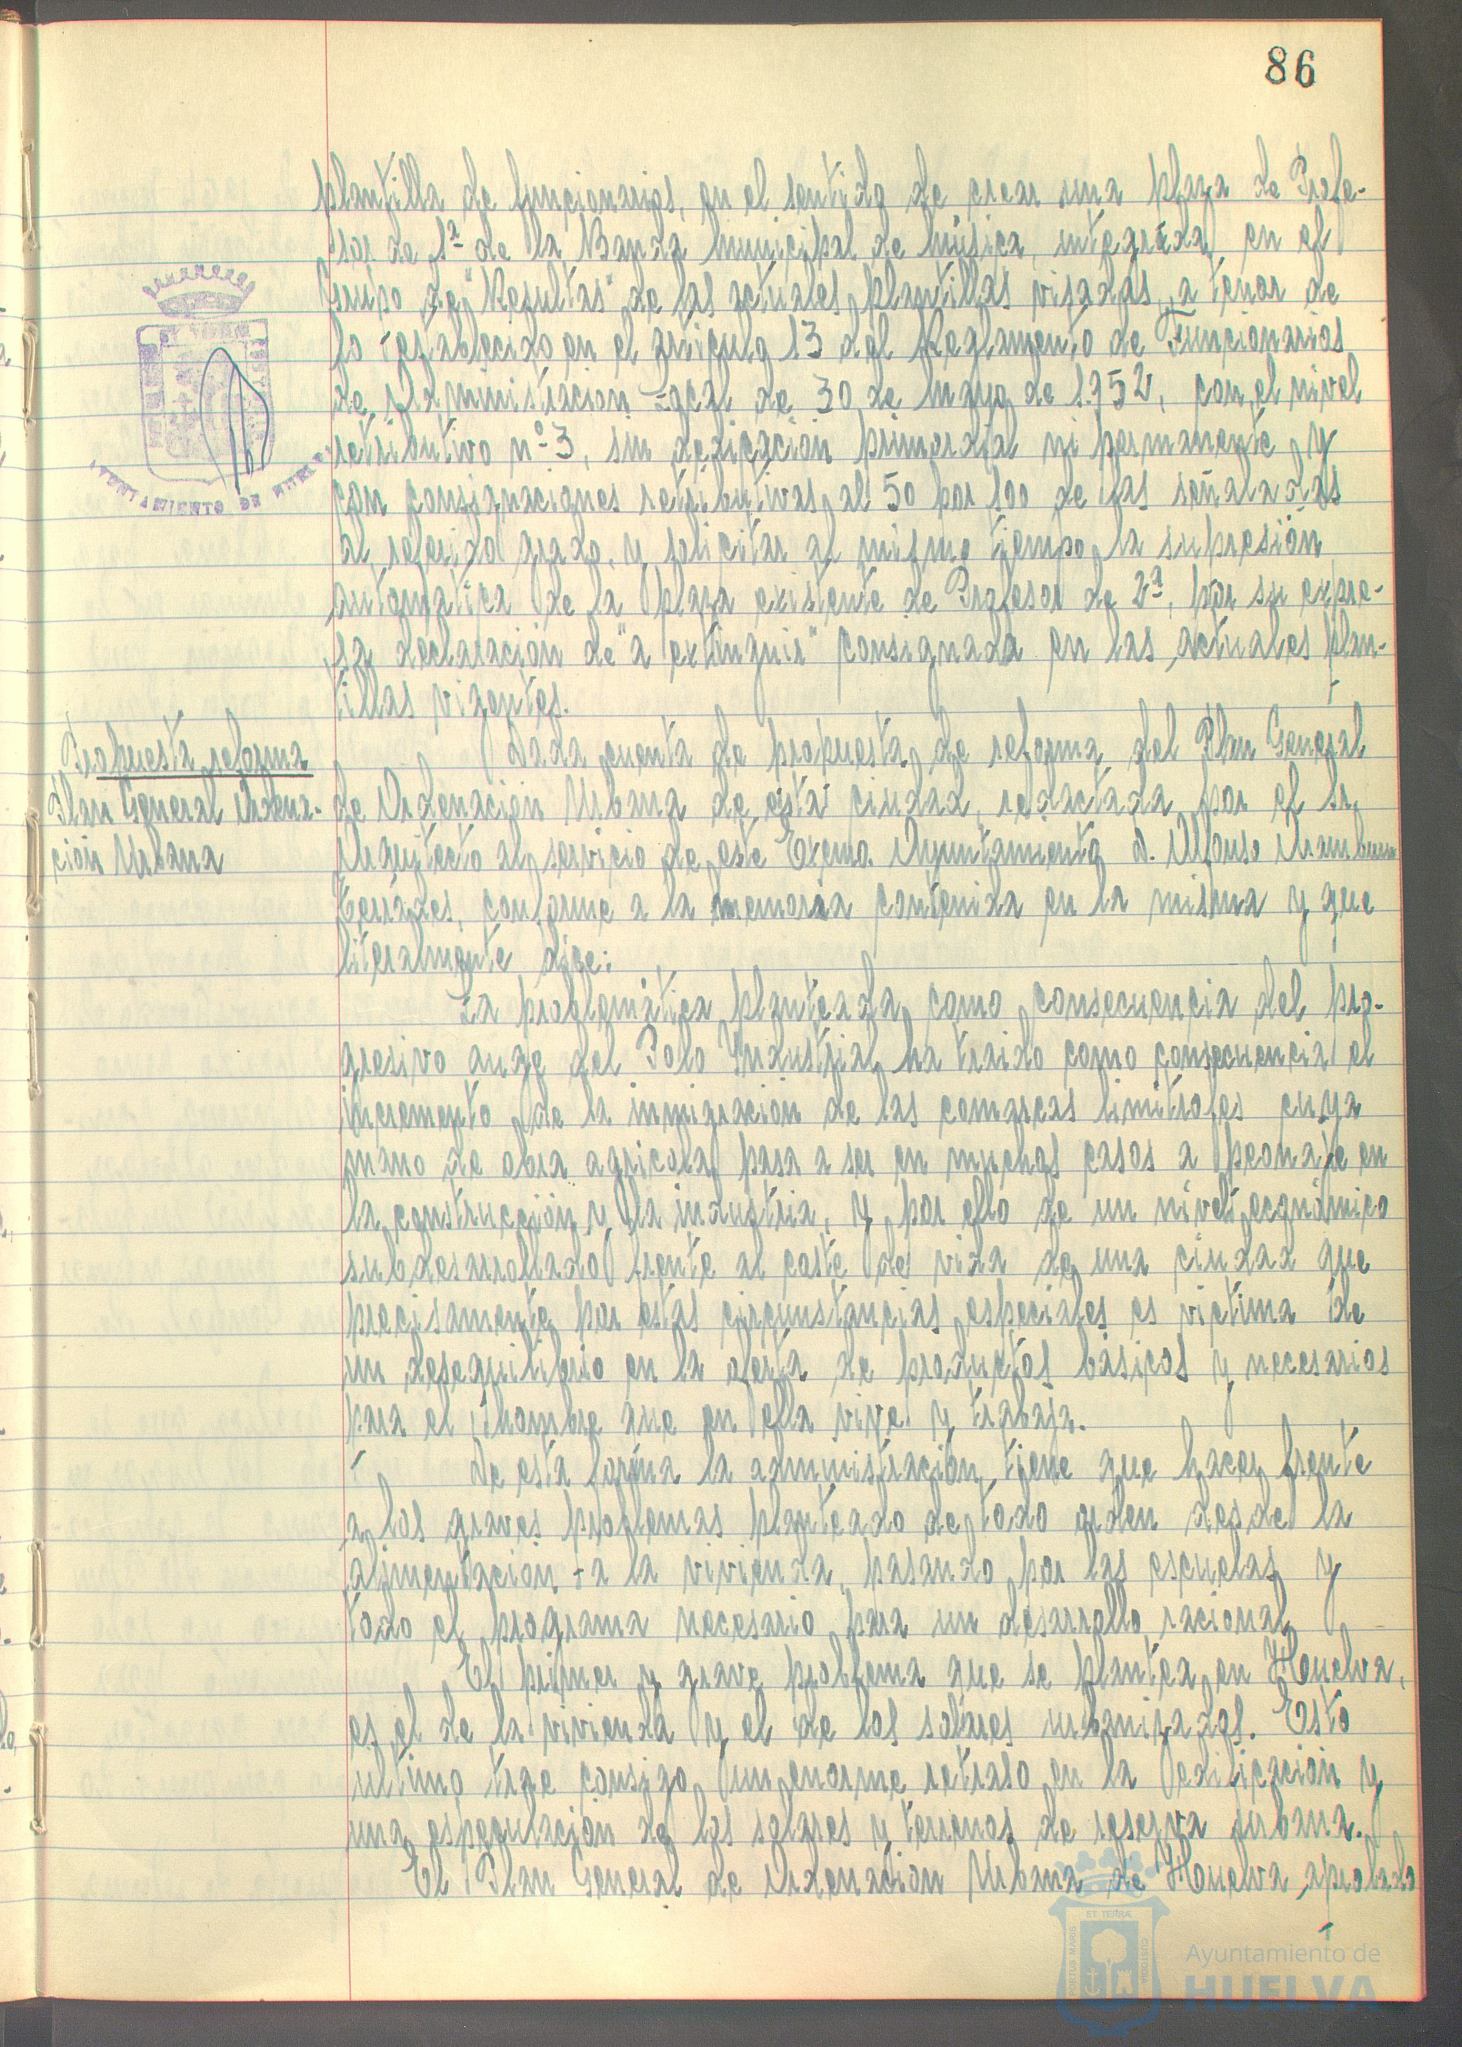 86
plantilla de funcionarios, en el sentido de crear una plaza de Profe-
sor de 1ª de la Banda Municipal de Música, integrada en el
Grupo de "Resultas" de las actuales plantillas visadas, a tenor de
lo establecido en el artículo 13 del Reglamento de Funcionarios
de Administración Local de 30 de Mayo de 1.952, con el nivel
retributivo nº 3, sin dedicación primordial ni permanente y
con consignaciones retributivas al 50 por 100 de las señaladas
al referido grado, y solicitar al mismo tiempo la supresión
automática de la plaza existente de Profesor de 2ª, por su expre-
sa declaración de "a extinguir" consignada en las actuales plan-
tillas vigentes.
Propuesta reforma
Plan General Ordena-
ción Urbana
Dada cuenta de propuesta de reforma del Plan General
de Ordenación Urbana de esta ciudad, redactada por el Sr.
Arquitecto al servicio de este Excmo. Ayuntamiento D. Alfonso
conforme a la memoria contenida en la misma y que
literalmente dice:
La problemática planteada como consecuencia del pro-
gresivo auge del Polo Industrial ha traido como consecuencia el
incremento de la inmigración de las comarcas limitrofes cuya
mano de obra agricola pasa a ser en muchos casos a peonaje en
la construcción y la industria, y por ello de un nivel económico
subdesarrollado frente al coste de vida de una ciudad que
precisamente por estas circunstancias especiales es victima de
un desequilibrio en la oferta de productos básicos y necesarios
para el hombre que en ella vive y trabaja.
De esta forma la administración tiene que hacer frente
a los graves problemas planteado de todo orden desde la
alimentación a la vivienda, pasando por las escuelas y
todo el programa necesario para un desarrollo racional
El primer y grave problema que se plantea en Huelva,
es el de la vivienda y el de los solares urbanizados. Esto
ultimo trae consigo un enorme retraso en la edificación y
una especulación de los solares y terrenos de reserva urbana.
El Plan General de Ordenación Urbana de Huelva aprobado
AYUNTAMIENTO DE HUELVA
PORTUS MARIS
ET TERRÆ
CUSTODIA
Ayuntamiento de
HUELVA